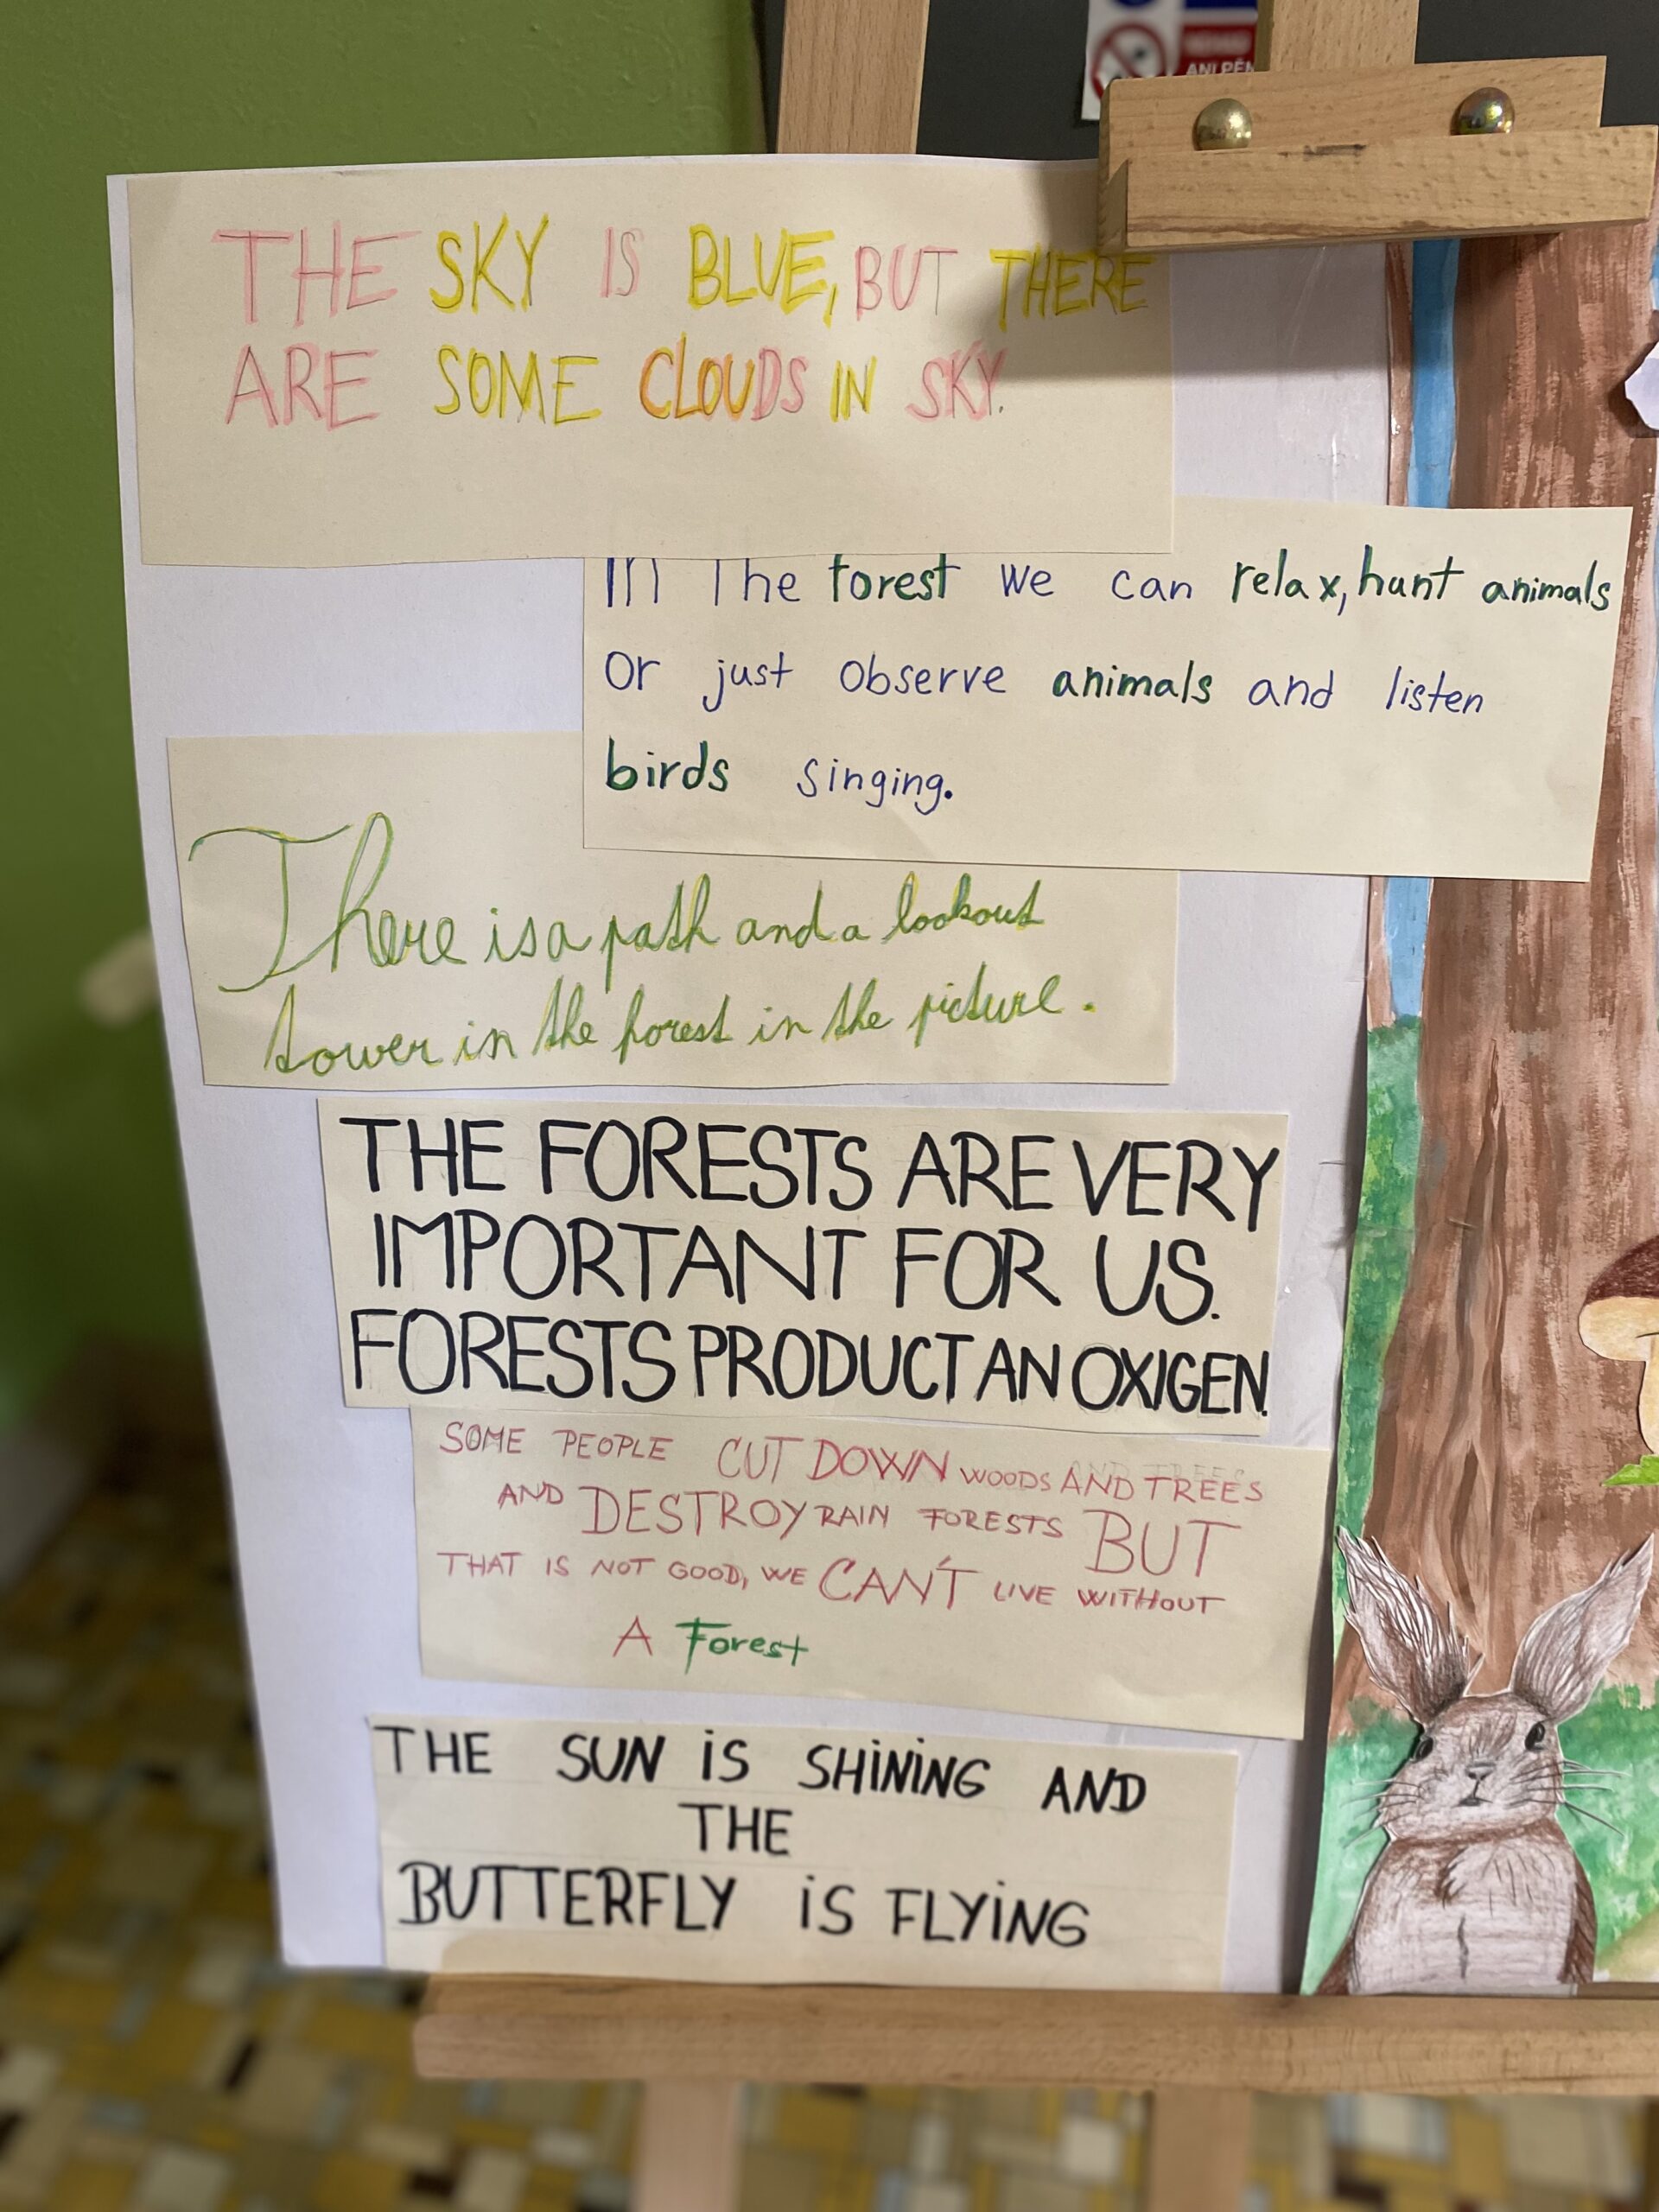 ANI PĚN
THE SKY IS BLUE, BUT THERE
ARE SOME CLOUDS IN SKY.
In The forest we can relax, hunt animals
Or just observe animals and listen
birds singing.
There is a path and a lookout
tower in the forest in the picture.
THE FORESTS ARE VERY
IMPORTANT FOR US.
FORESTS PRODUCT AN OXIGEN.
SOME PEOPLE CUT DOWN WOODS AND TREES
AND DESTROY RAIN FORESTS BUT
THAT IS NOT GOOD, WE CAN'T LIVE WITHOUT
A Forest
THE SUN iS SHiNiNG AND
THE
BUTTERFLY iS FLYiNG